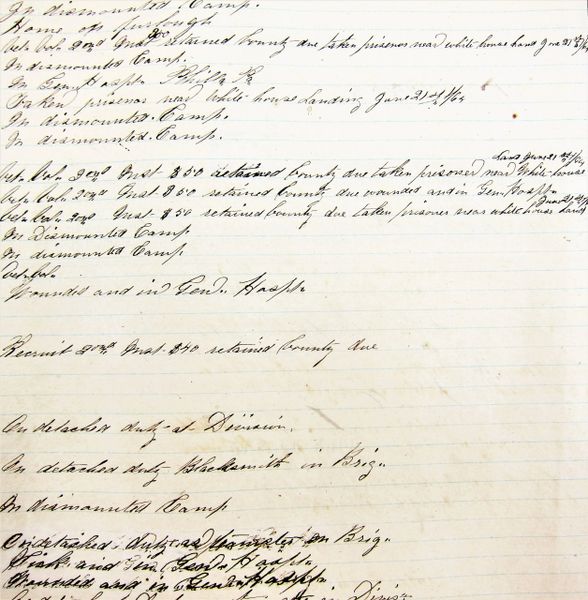 In dismounted Camp.
Home on furlough
Vet. Vol. 2nd Inst $50 retained bounty due taken prisoner near white house land June 21st/64
In dismounted Camp.
In Gen. Hospt. Phila Pa
Taken prisoner near White house Landing June 21st/64
In dismounted Camp.
In dismounted Camp.
Land June 21st/64
Vet. Vol. 2nd Inst $50 retained bounty due taken prisoner near White house
Vet. Vol. 2nd Inst $50 retained bounty due wounded and in Gen. Hospt.
June 21st/64
Vet. Vol. 2nd Inst $50 retained bounty due taken prisoner near white house Land
In Dismounted Camp
In dismounted Camp
Vet. Vol.
Wounded and in Genl. Hospt.
Recruit 2nd Inst $40 retained bounty due
On detached duty at Division.
On detached duty Blacksmith in Brig.
In dismounted Camp
On detached duty as teamster in Brig.
Sick and in Genl. Hospt.
Wounded and in Genl. Hospt.